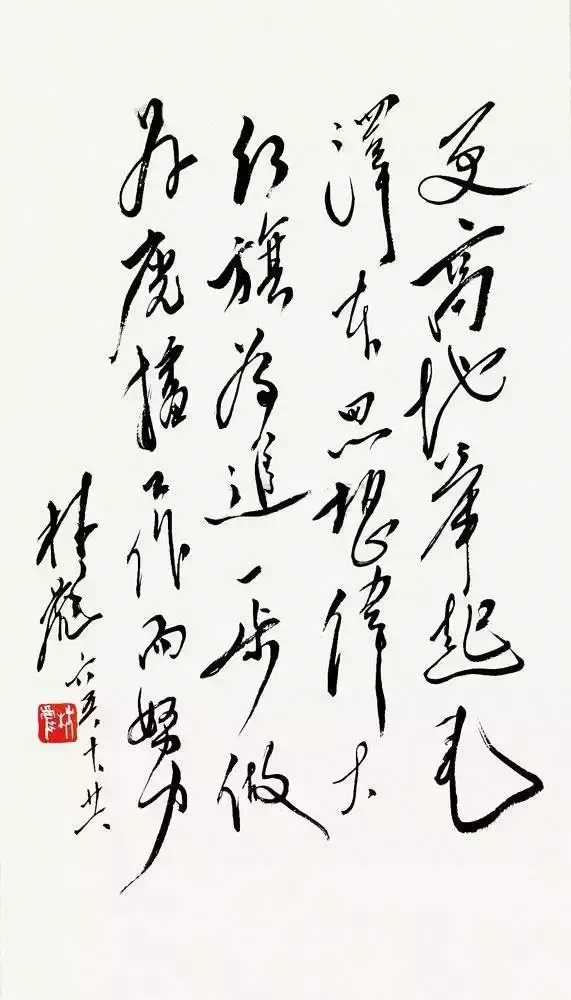 更高地举起毛
澤东思想偉大
红旗为進一步做
好廣播工作而努力
林彪 六五、十、廿六